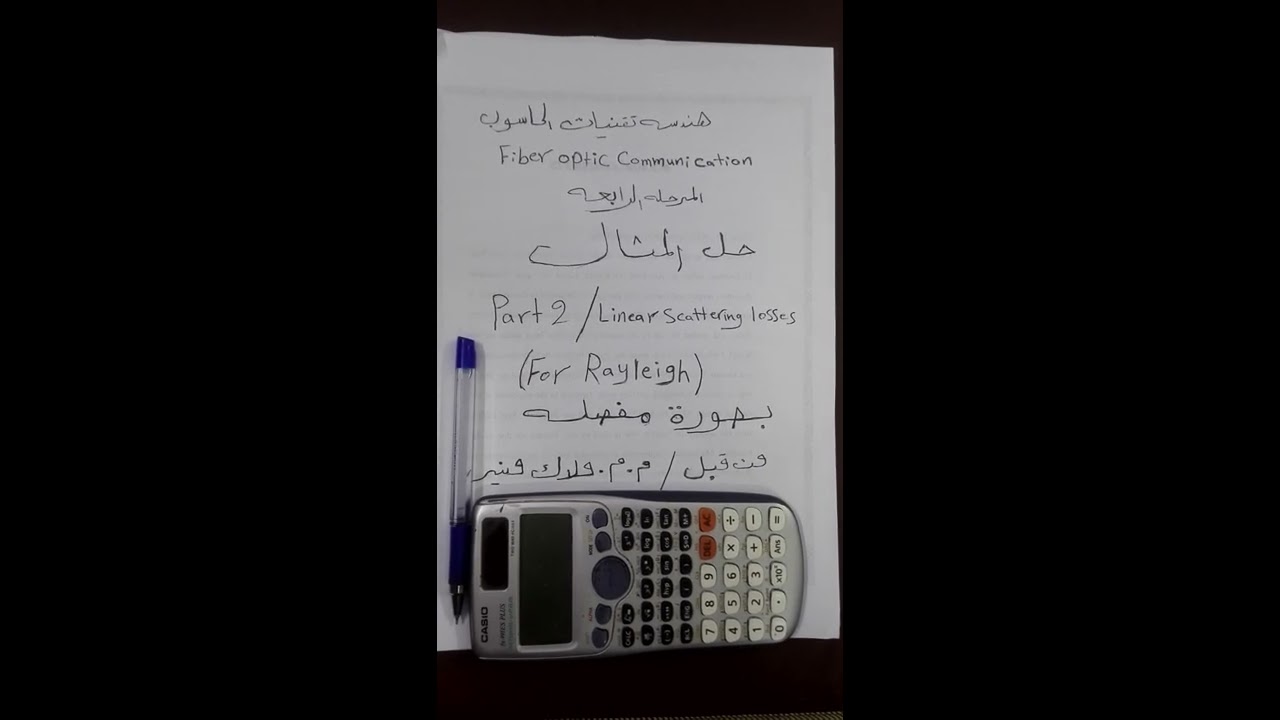 هندسه تقنيات الحاسوب
Fiber optic Communication
المرحله الرابعه
حل المثال
Part 2 / Linear Scattering losses
(For Rayleigh)
بصورة مفصله
من قبل / م.م. ملاك منير
CASIO
AC
DEL
÷
−
=
×
+
Ans
9
6
3
×10ˣ
8
5
2
.
7
4
1
0